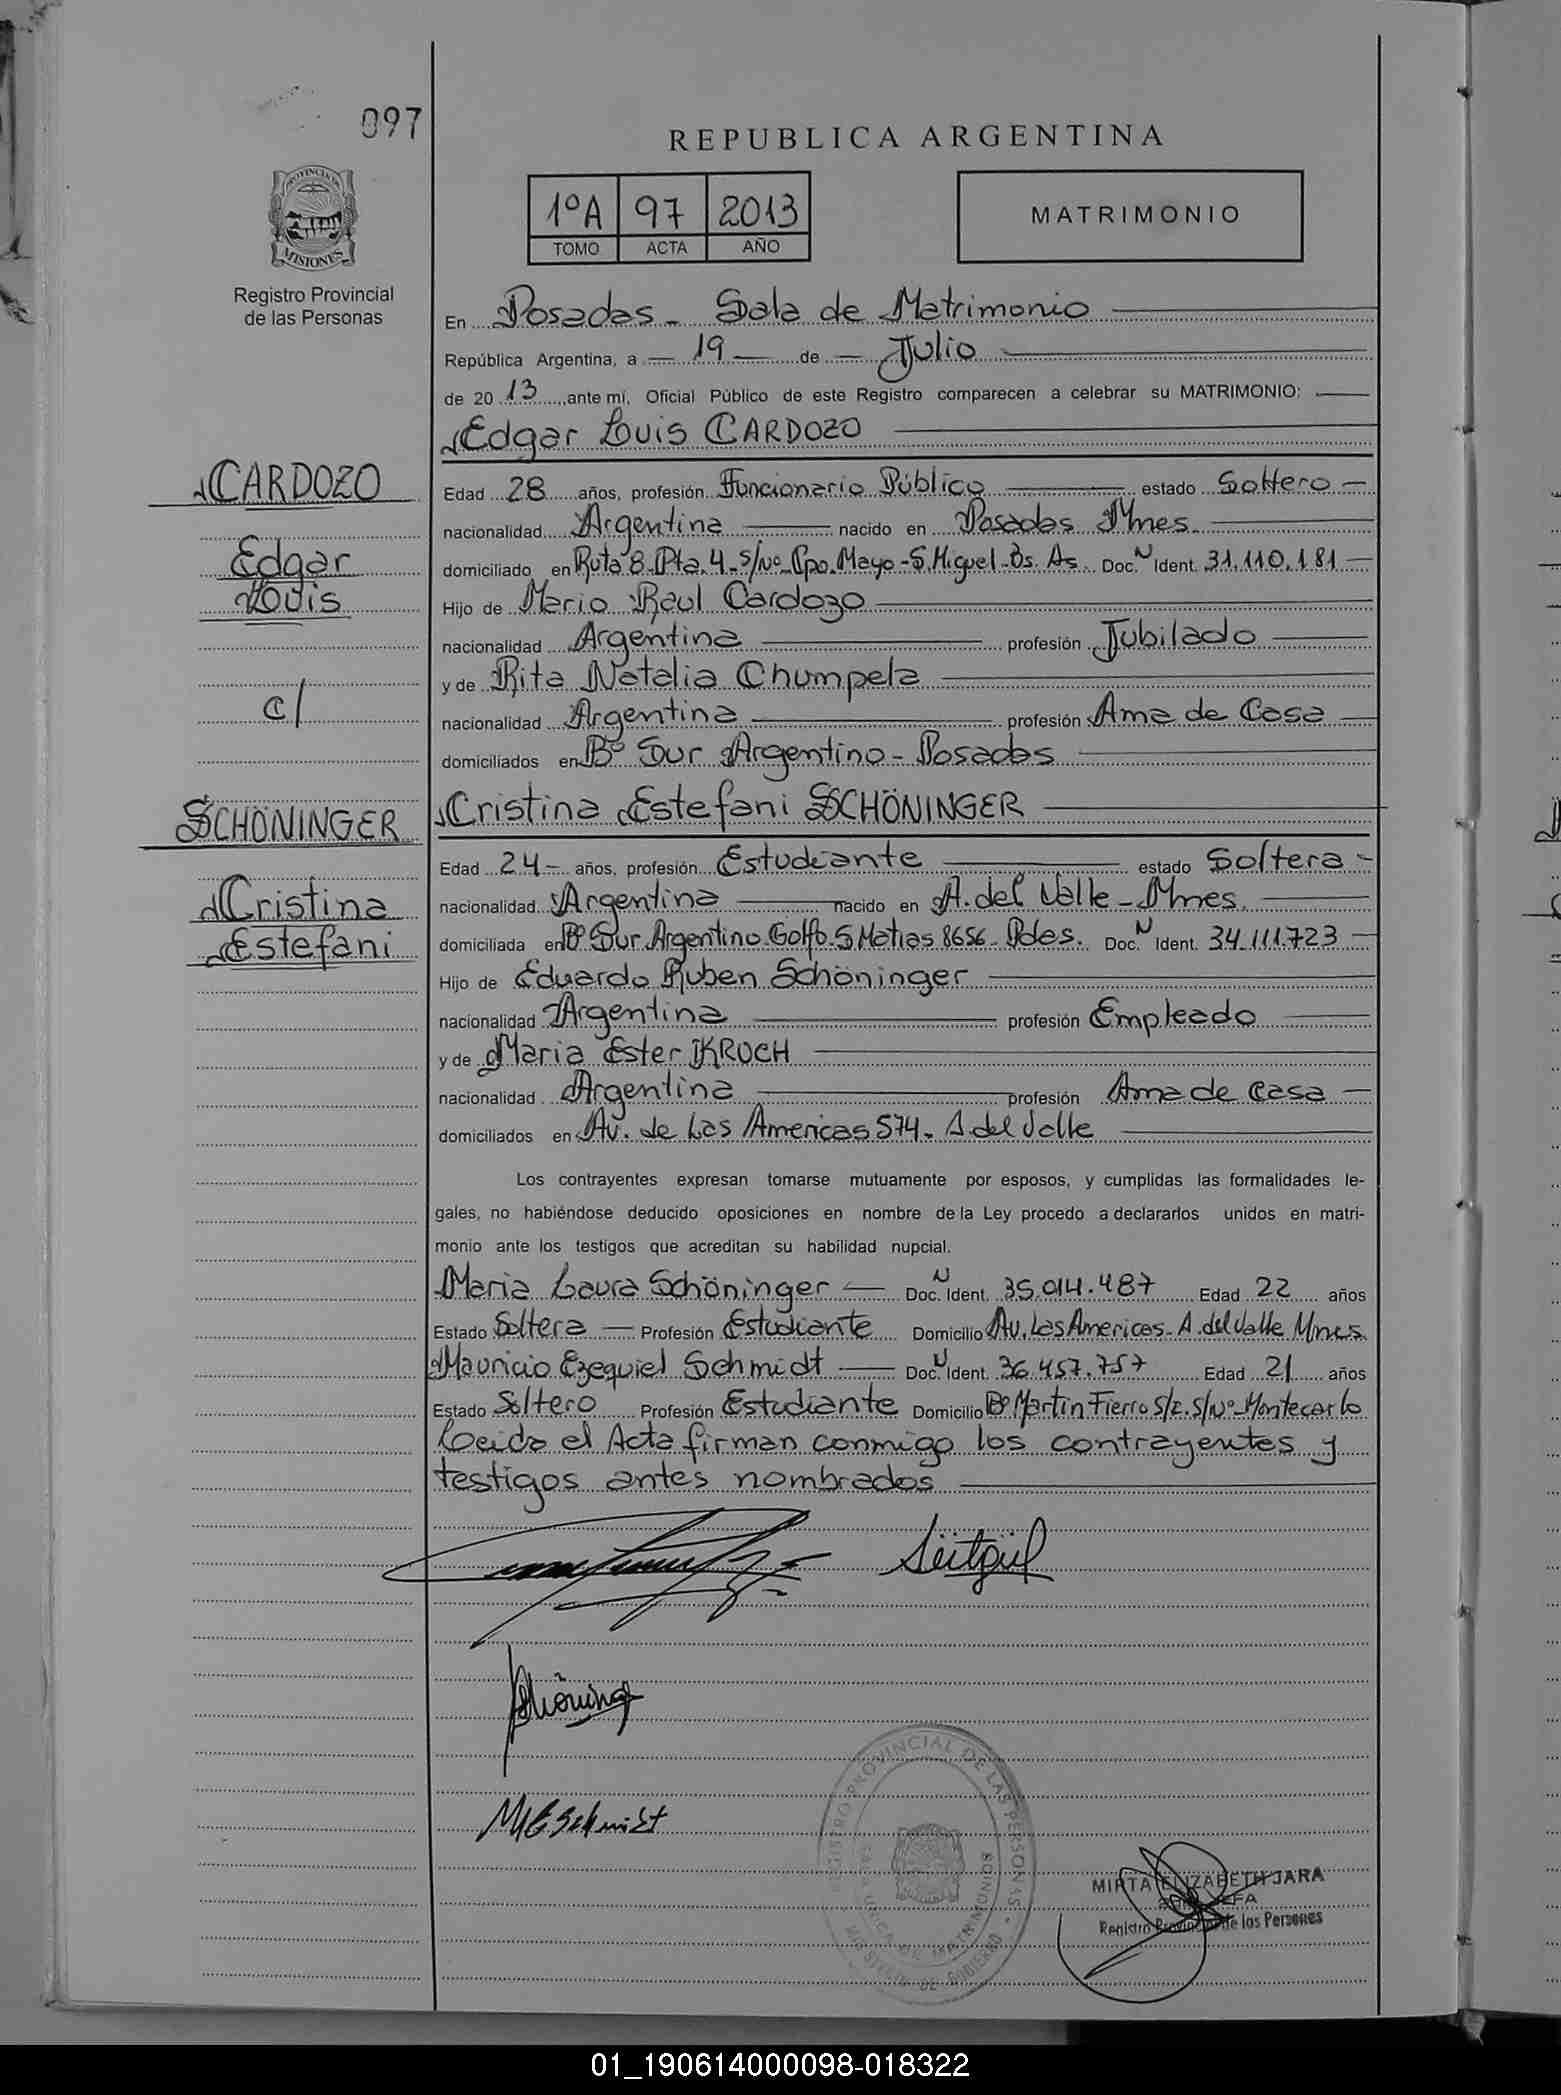 097
REPUBLICA ARGENTINA
1ºA 97 2013
TOMO ACTA AÑO
MATRIMONIO
PROVINCIA DE
MISIONES
Registro Provincial
de las Personas
En Posadas - Sala de Matrimonio
República Argentina, a 19 de Julio
de 20 13 ,ante mí, Oficial Público de este Registro comparecen a celebrar su MATRIMONIO:
Edgar Luis CARDOZO
CARDOZO
Edgar
Luis
c/
SCHÖNINGER
Cristina
Estefani
Edad 28 años, profesión Funcionario Público estado Soltero -
nacionalidad Argentina nacido en Posadas Mnes.
domiciliado en Ruta 8 Pta. 4 - S/Nº - Cpo. Mayo - S. Miguel - Bs. As. Doc. N Ident. 31.110.181 -
Hijo de Mario Raul Cardozo
nacionalidad Argentina profesión Jubilado
y de Rita Natalia Chumpela
nacionalidad Argentina profesión Ama de Casa
domiciliados en Bº Sur Argentino - Posadas
Cristina Estefani SCHÖNINGER
Edad 24 - años, profesión Estudiante estado Soltera -
nacionalidad Argentina nacido en A. del Valle - Mnes.
domiciliada en Bº Sur Argentino Golfo S Matias 8656 - Pdas. Doc. N Ident. 34.111.723 -
Hijo de Eduardo Ruben Schöninger
nacionalidad Argentina profesión Empleado
y de Maria Ester KROCH
nacionalidad Argentina profesión Ama de Casa -
domiciliados en Av. de Las Americas 574 - A del Valle
Los contrayentes expresan tomarse mutuamente por esposos, y cumplidas las formalidades le-
gales, no habiéndose deducido oposiciones en nombre de la Ley procedo a declararlos unidos en matri-
monio ante los testigos que acreditan su habilidad nupcial.
Maria Laura Schöninger - Doc. N Ident. 35.014.487 Edad 22 años
Estado Soltera - Profesión Estudiante Domicilio Av. Las Americas - A. del Valle Mnes.
Mauricio Ezequiel Schmidt - Doc. N Ident. 36.457.757 Edad 21 años
Estado Soltero Profesión Estudiante Domicilio Bº Martin Fierro S/E. S/Nº - Montecarlo
Leida el Acta firman conmigo los contrayentes y
testigos antes nombrados
Schöninger
MESchmidt
REGISTRO PROVINCIAL DE LAS PERSONAS
SALA UNICA DE MATRIMONIOS
MINISTERIO DE GOBIERNO
MIRTA ELIZABETH JARA
JEFA
Registro Provincial de las Personas
01_190614000098-018322